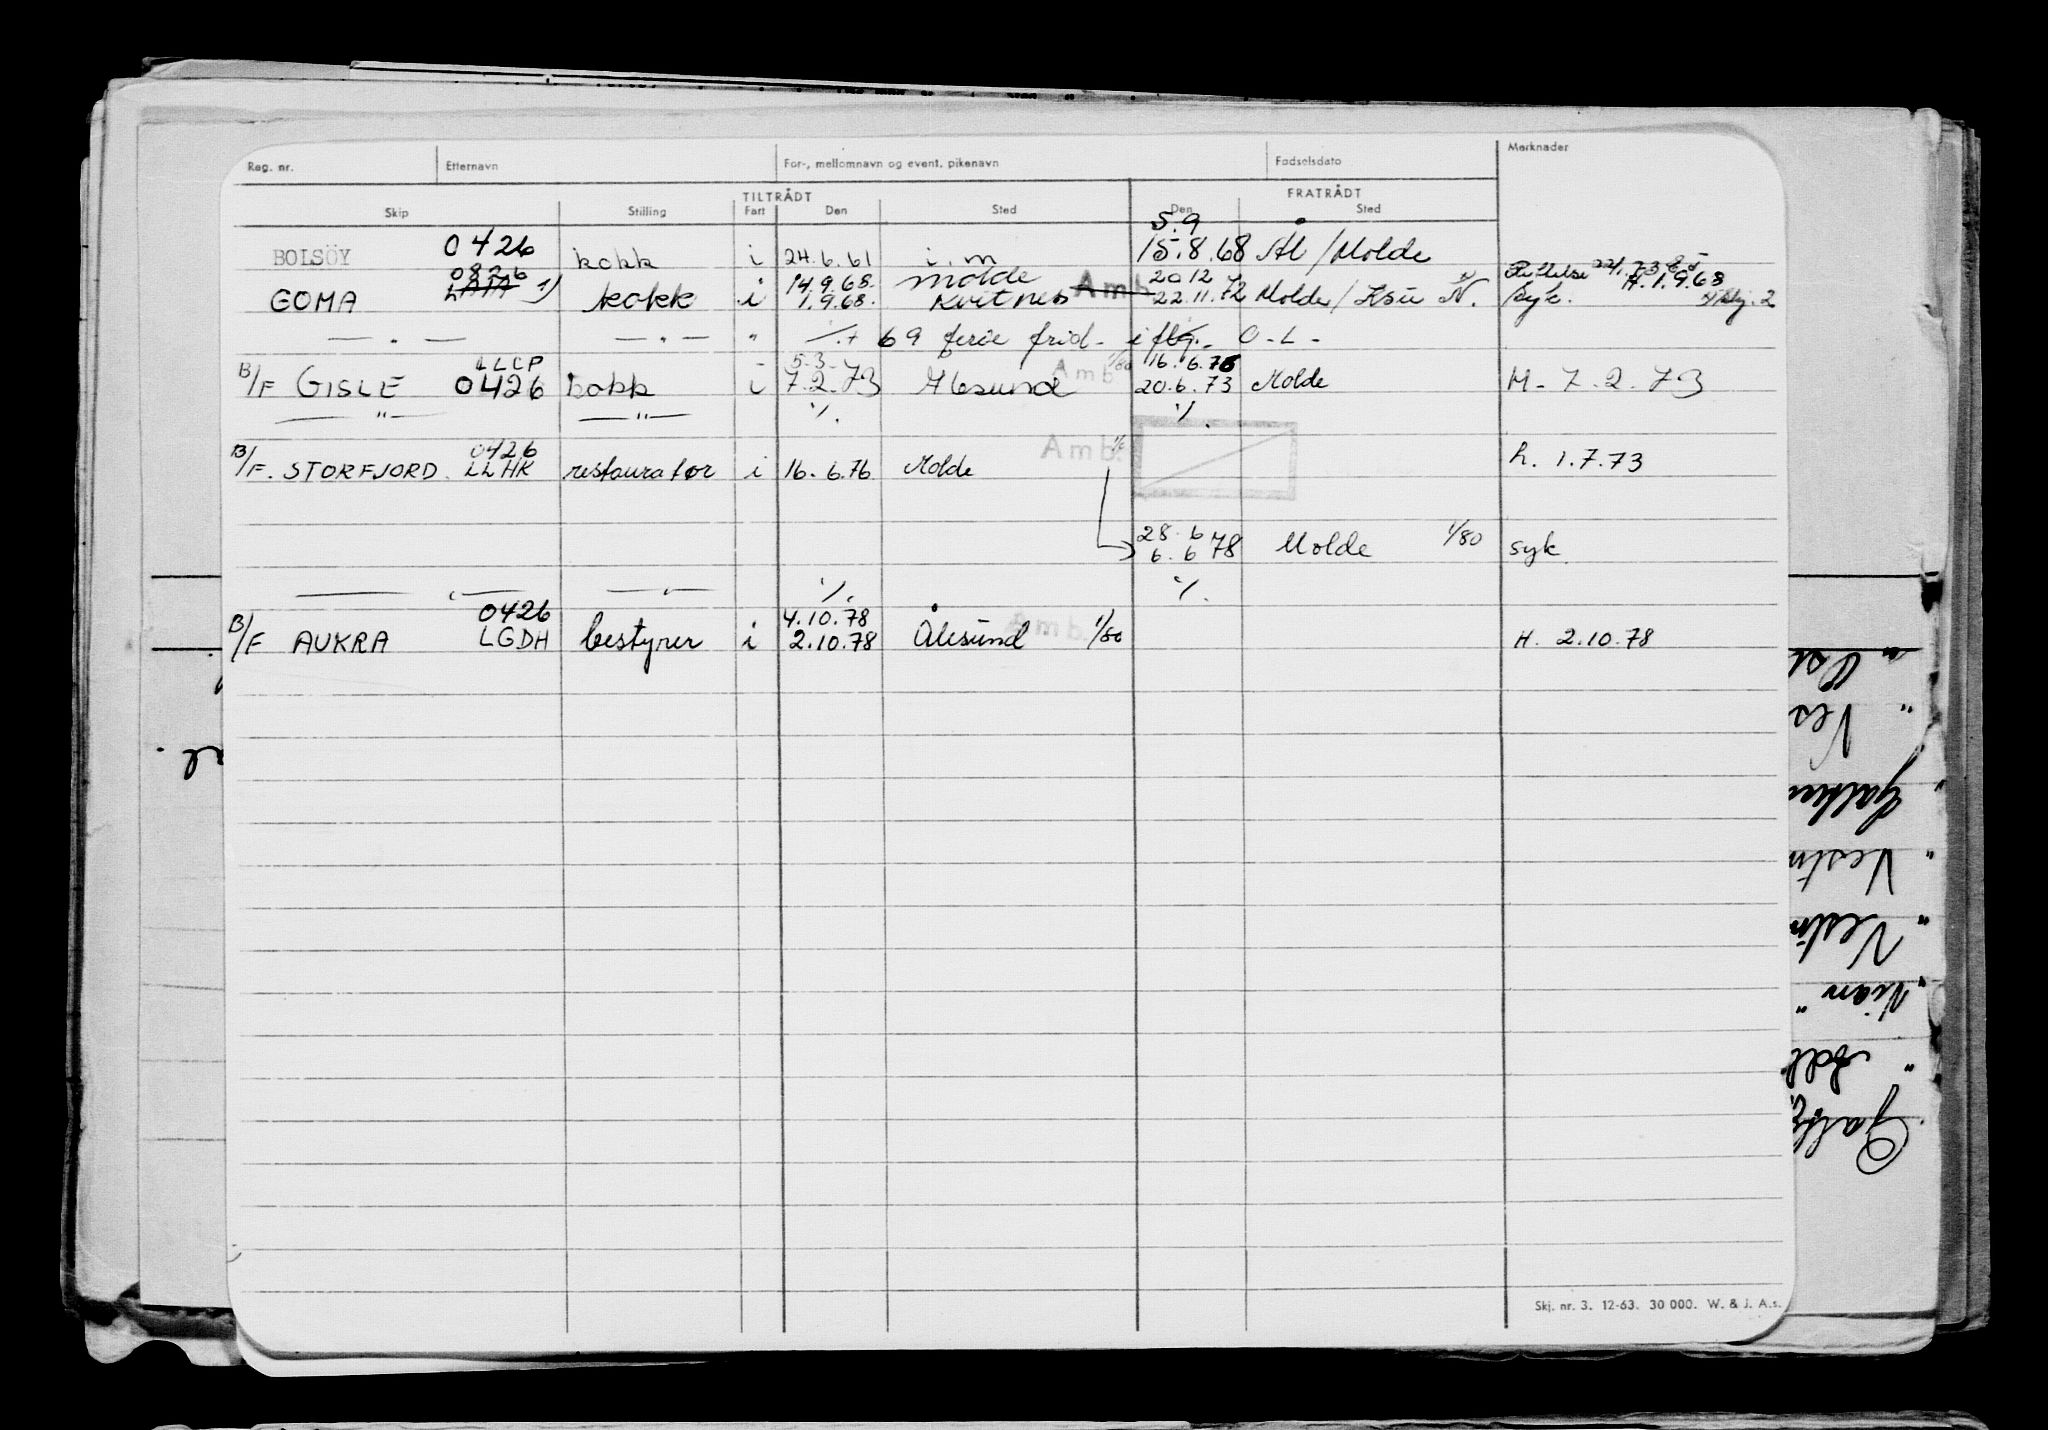 Reg. nr. Etternavn For-, mellomnavn og event. pikenavn Fødselsdato Merknader
TILTRÅDT FRATRÅDT
Skip Stilling Fart Den Sted Den Sted
5.9
BOLSÖY 0426 kokk i 24.6.61 i.m 15.8.68 Ål/Molde
0826 14.9.68. Molde 20.12 Rettelse
GOMA 1) kokk i 1.9.68. Kvitnes Amb. 22.11.72 Molde/Ksu N. syk. H.1.9.68
— " — — " — " 69 ferie frid. i flg. O-L-
LLCP 5.3. 1/80 16.6.76
B/F GISLE 0426 kokk i 7.2.73 Ålesund Amb 20.6.73 Molde H- 7.2.73
— " — — " — ./. ./.
0426 Amb.
B/F. STORFJORD. LLHK restauratør i 16.6.76 Molde h. 1.7.73
28.6
6.6 78 Molde 1/80 syk.
— " — — " — ./. ./.
0426 4.10.78
B/F AUKRA LGDH bestyrer i 2.10.78 Ålesund Amb. 1/80 H. 2.10.78
Skj. nr. 3. 12-63. 30 000. W. & J. A.s.